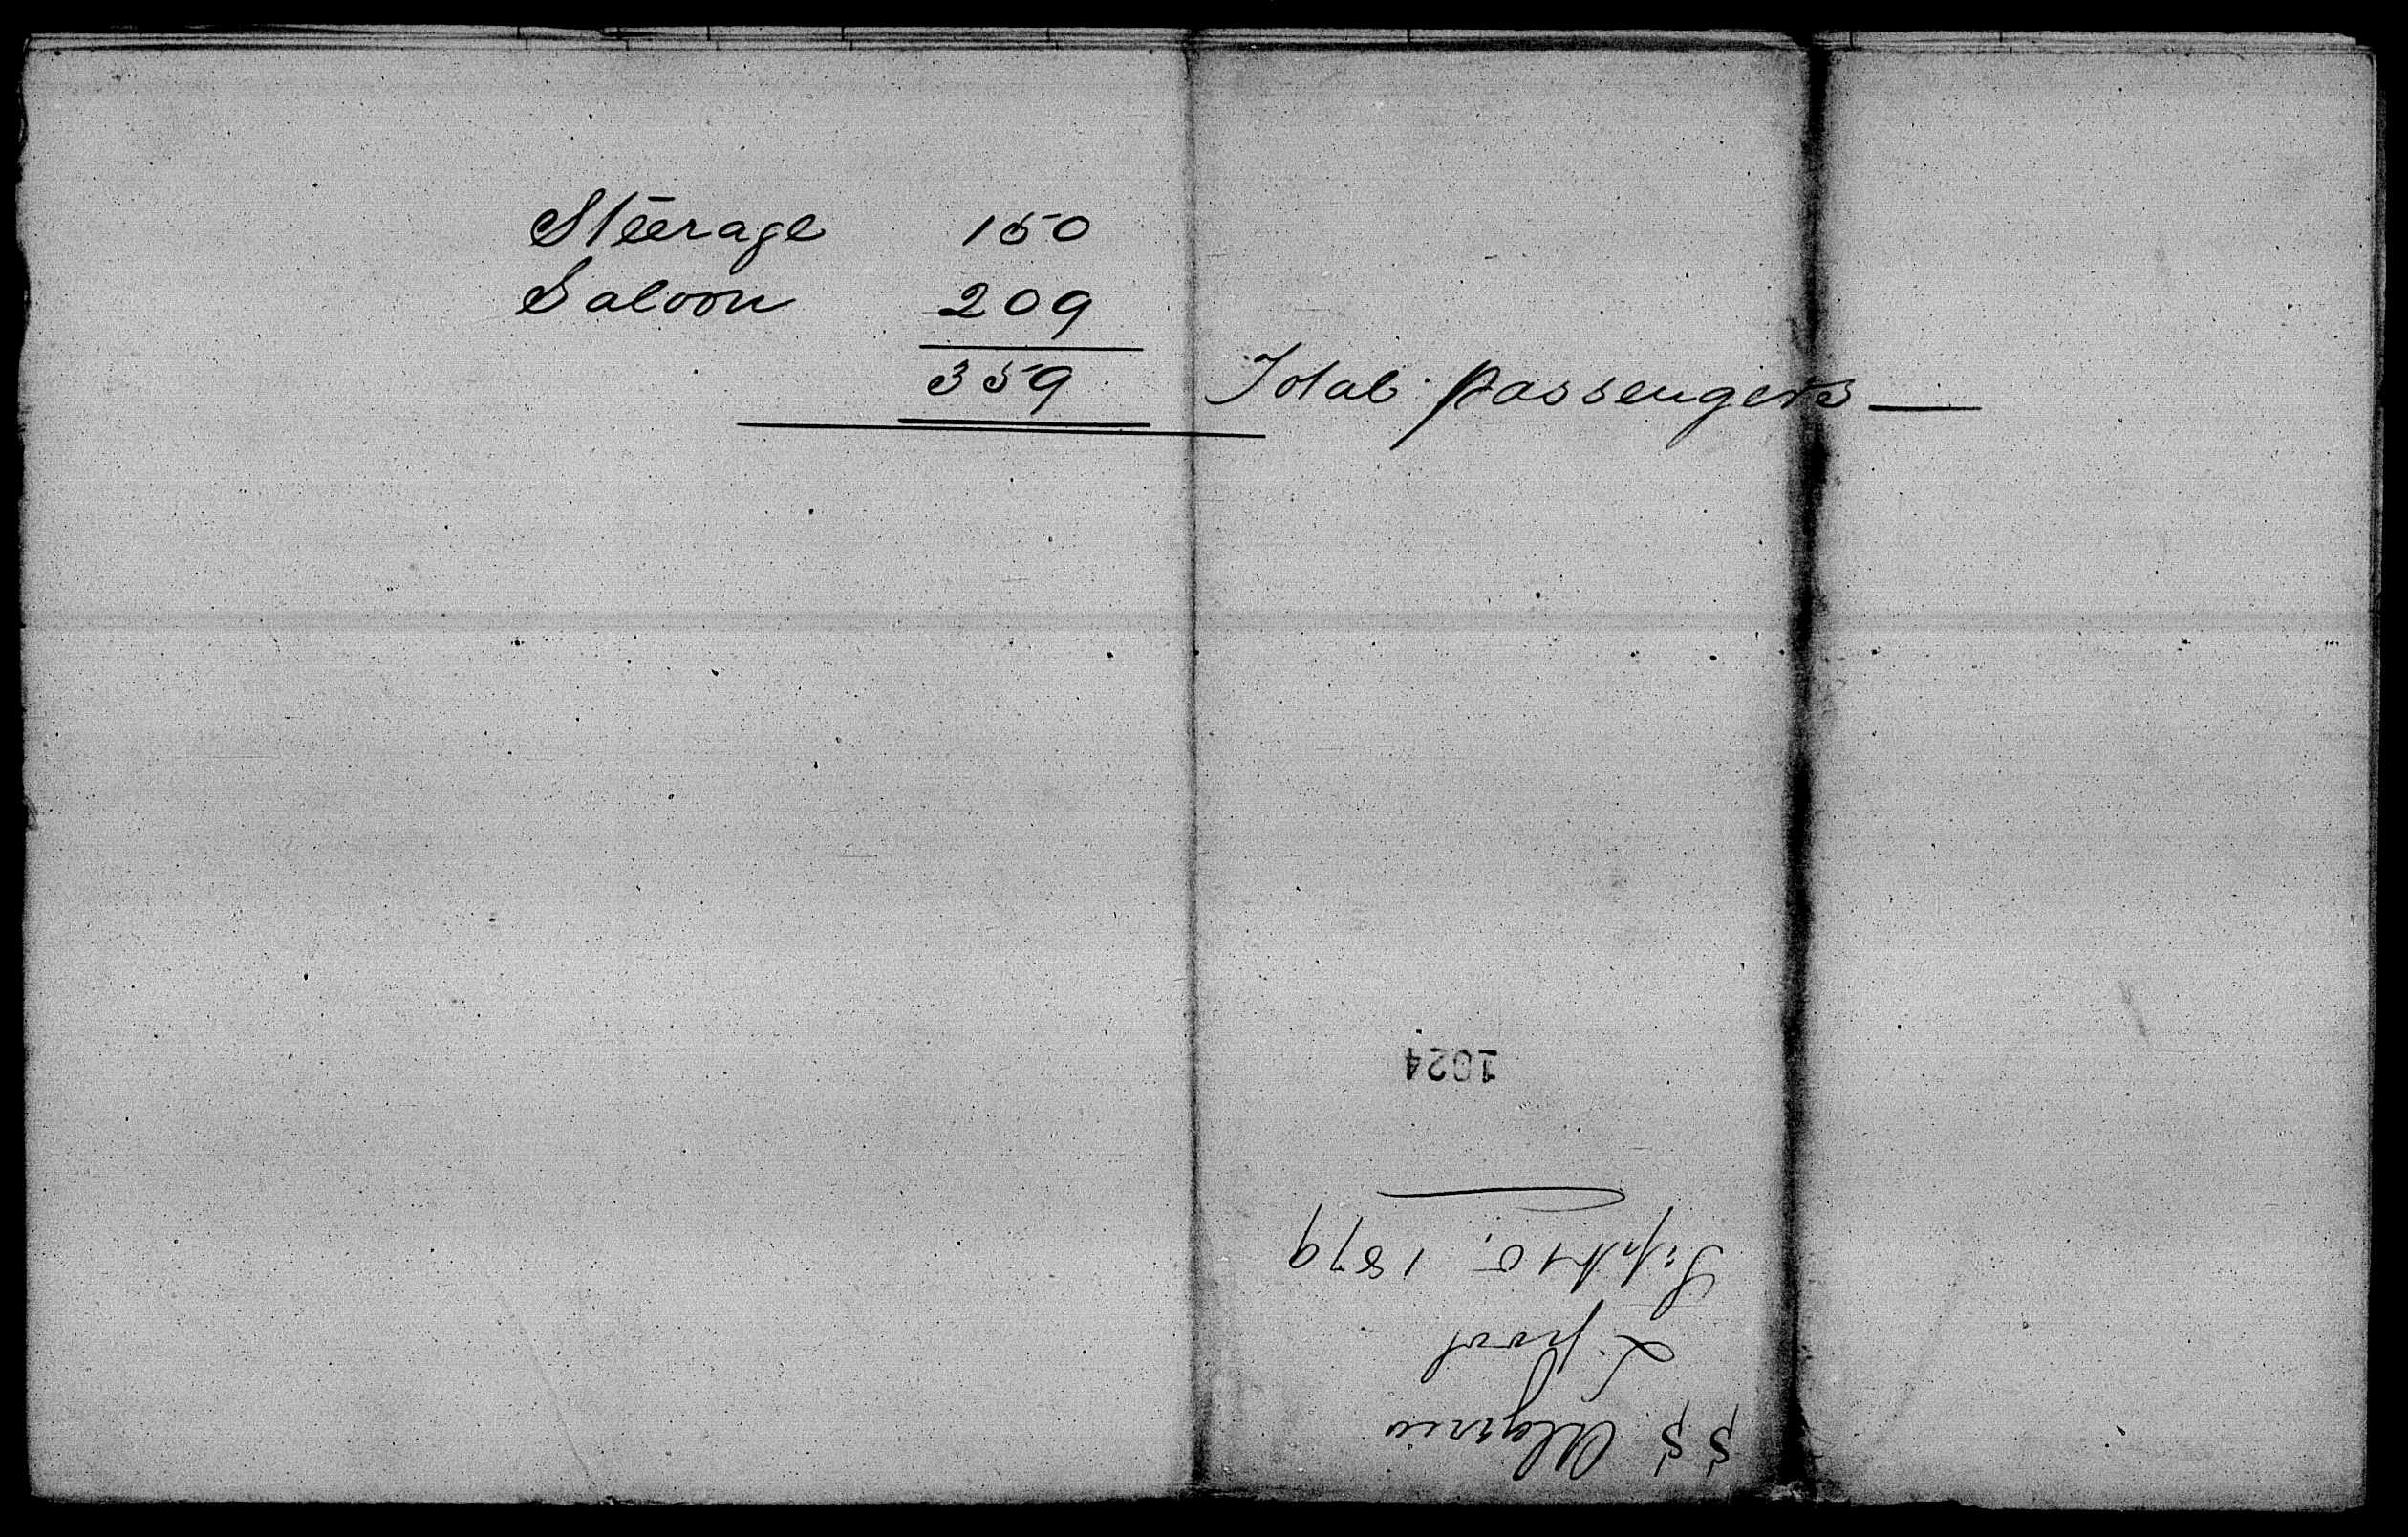 Steerage 150
Saloon 209
359 Total passengers —
1024
Sept 10, 1879
L.pool
SS Algeria